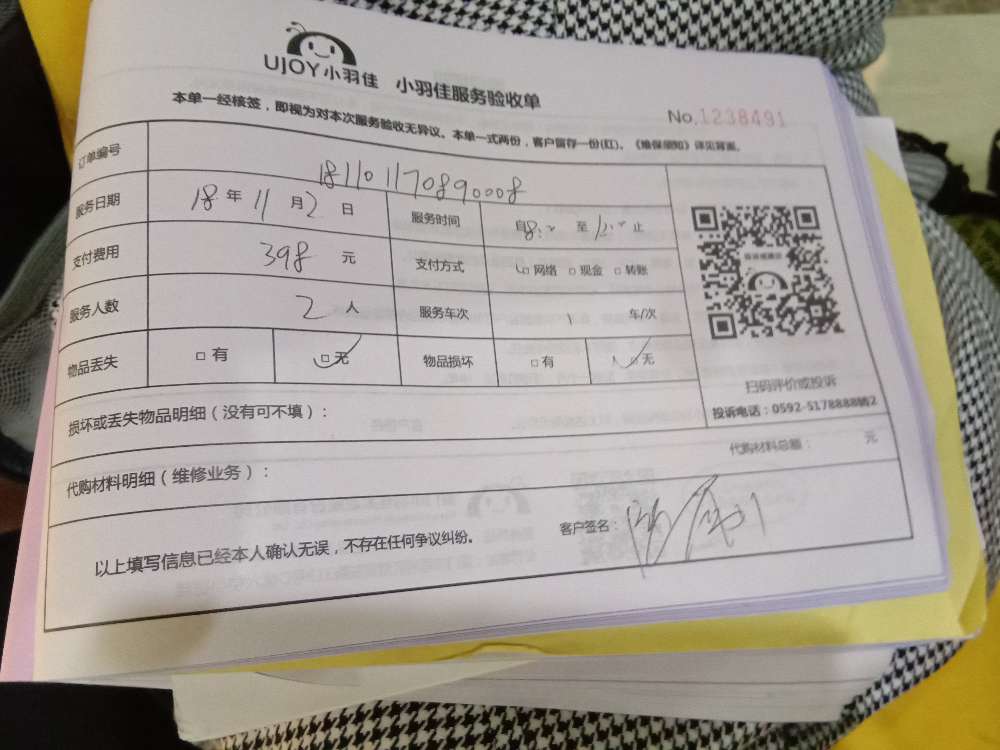 UJOY小羽佳 小羽佳服务验收单
No.1238491
本单一经核签，即视为对本次服务验收无异议。本单一式两份，客户留存一份(红)。《维保须知》详见背面。
订单编号 181101170890008
服务日期 18年11月2日 服务时间 自8:00至12:00止
支付费用 398元 支付方式 □网络 □现金 □转账
服务人数 2人 服务车次 1 车/次
物品丢失 □有 □无 物品损坏 □有 □无
扫码评价或投诉
投诉电话：0592-5178888转2
损坏或丢失物品明细（没有可不填）：
代购材料明细（维修业务）： 代购材料总额： 元
以上填写信息已经本人确认无误，不存在任何争议纠纷。 客户签名：